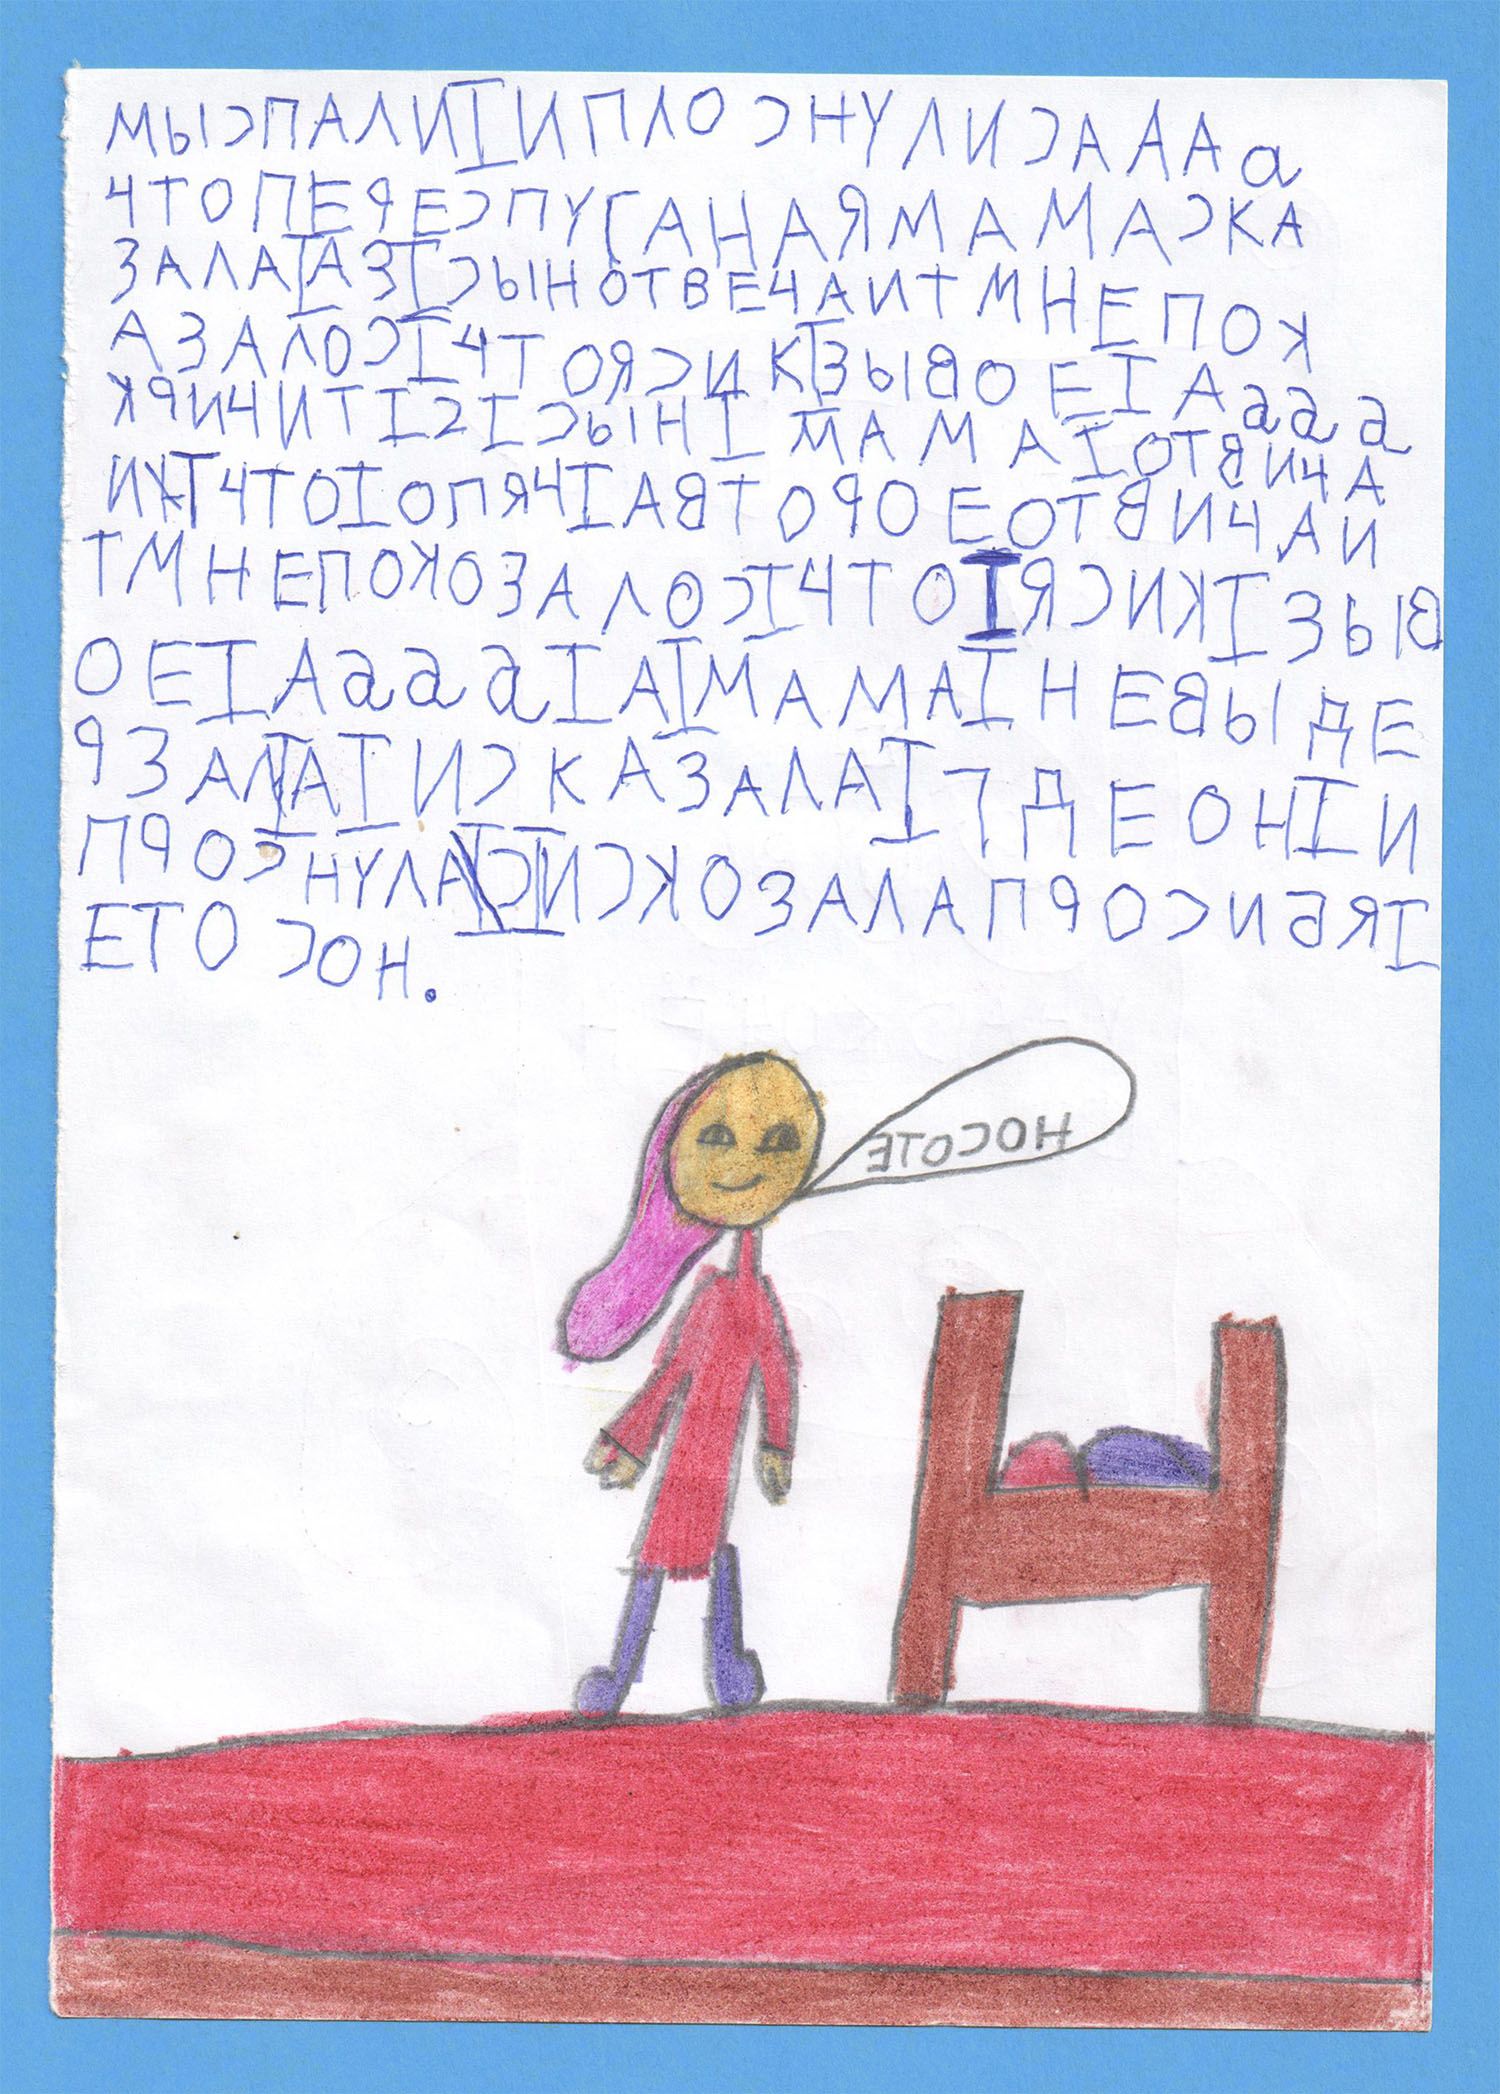 МЫСПАЛИIИПЛОСНУЛИСАААа
ЧТОПЕРЕСПУГАНАЯМАМАСКА
ЗАЛАIАЗIСЫНОТВЕЧАИТМНЕПОК
АЗАЛОСIЧТОЯСИКIЗЫВОЕIАааа
КРИЧИТI2IСЫНIМАМАIОТВИЧА
ИТЧТОIОПЯЧIАВТОРОЕОТВИЧАИ
ТМНЕПОКОЗАЛОСIЧТОIЯСИКIЗЫВ
ОЕIАаааIАIМАМАIНЕВЫДЕ
РЗАЛАIИСКАЗАЛАIГДЕОНIИ
ПРОСНУЛАСIИСКОЗАЛАПРОСИБЯI
ЕТОСОН.
НОСОТЕ